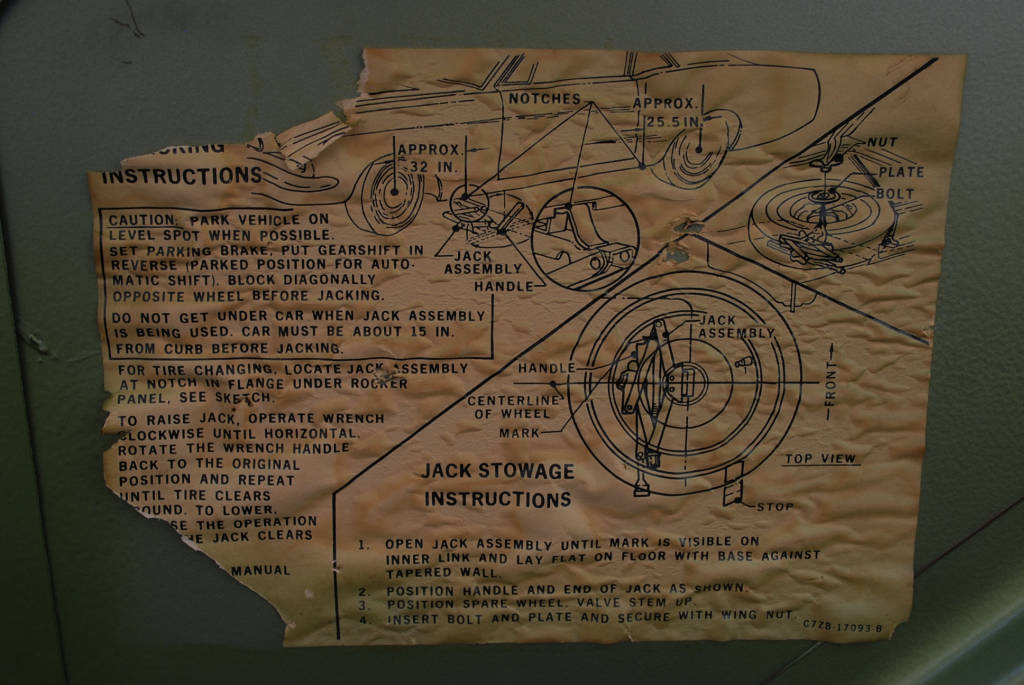 INSTRUCTIONS
CAUTION: PARK VEHICLE ON
LEVEL SPOT WHEN POSSIBLE.
SET PARKING BRAKE, PUT GEARSHIFT IN
REVERSE (PARKED POSITION FOR AUTO-
MATIC SHIFT). BLOCK DIAGONALLY
OPPOSITE WHEEL BEFORE JACKING.
DO NOT GET UNDER CAR WHEN JACK ASSEMBLY
IS BEING USED. CAR MUST BE ABOUT 15 IN.
FROM CURB BEFORE JACKING.
FOR TIRE CHANGING, LOCATE JACK ASSEMBLY
AT NOTCH IN FLANGE UNDER ROCKER
PANEL, SEE SKETCH.
TO RAISE JACK, OPERATE WRENCH
CLOCKWISE UNTIL HORIZONTAL.
ROTATE THE WRENCH HANDLE
BACK TO THE ORIGINAL
POSITION AND REPEAT
UNTIL TIRE CLEARS
OUND. TO LOWER,
SE THE OPERATION
HE JACK CLEARS
MANUAL
NOTCHES
APPROX.
25.5 IN.
APPROX.
32 IN.
JACK
ASSEMBLY
HANDLE
NUT
PLATE
BOLT
JACK
ASSEMBLY
HANDLE
CENTERLINE
OF WHEEL
MARK
FRONT
TOP VIEW
STOP
JACK STOWAGE
INSTRUCTIONS
1. OPEN JACK ASSEMBLY UNTIL MARK IS VISIBLE ON
INNER LINK AND LAY FLAT ON FLOOR WITH BASE AGAINST
TAPERED WALL.
2. POSITION HANDLE AND END OF JACK AS SHOWN.
3. POSITION SPARE WHEEL, VALVE STEM UP.
4. INSERT BOLT AND PLATE AND SECURE WITH WING NUT.
C7ZB-17093-B